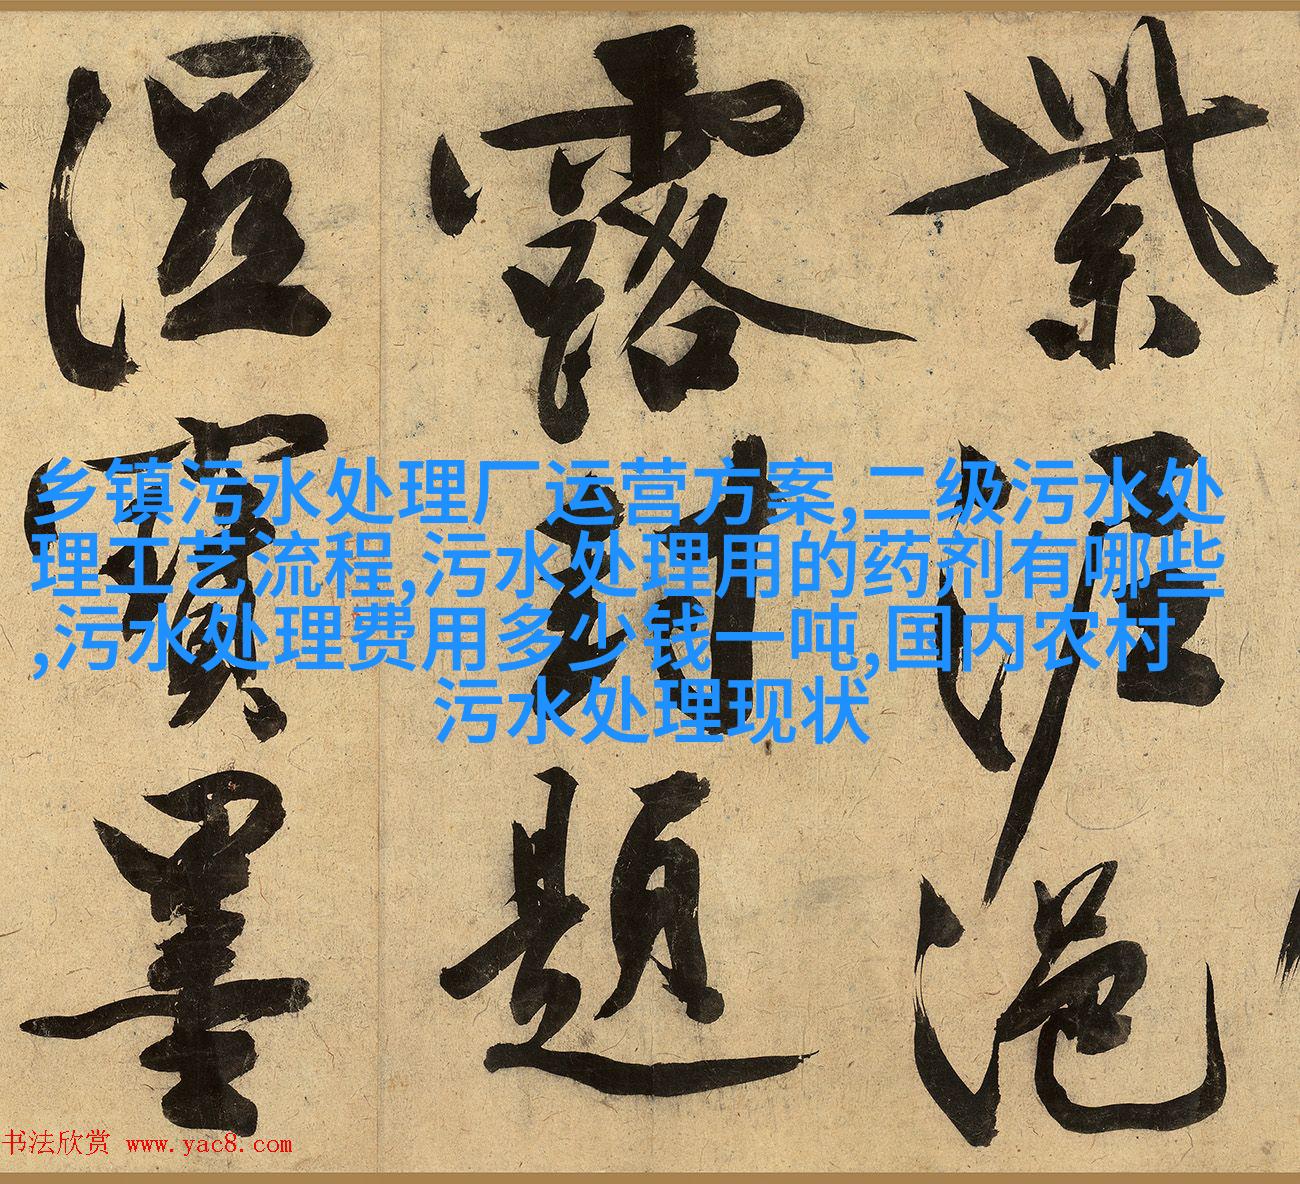 紫泥浥
露封題
溼寶墨
乡镇污水处理厂运营方案,二级污水处
理工艺流程,污水处理用的药剂有哪些
,污水处理费用多少钱一吨,国内农村
污水处理现状
书法欣赏 www.yac8.com